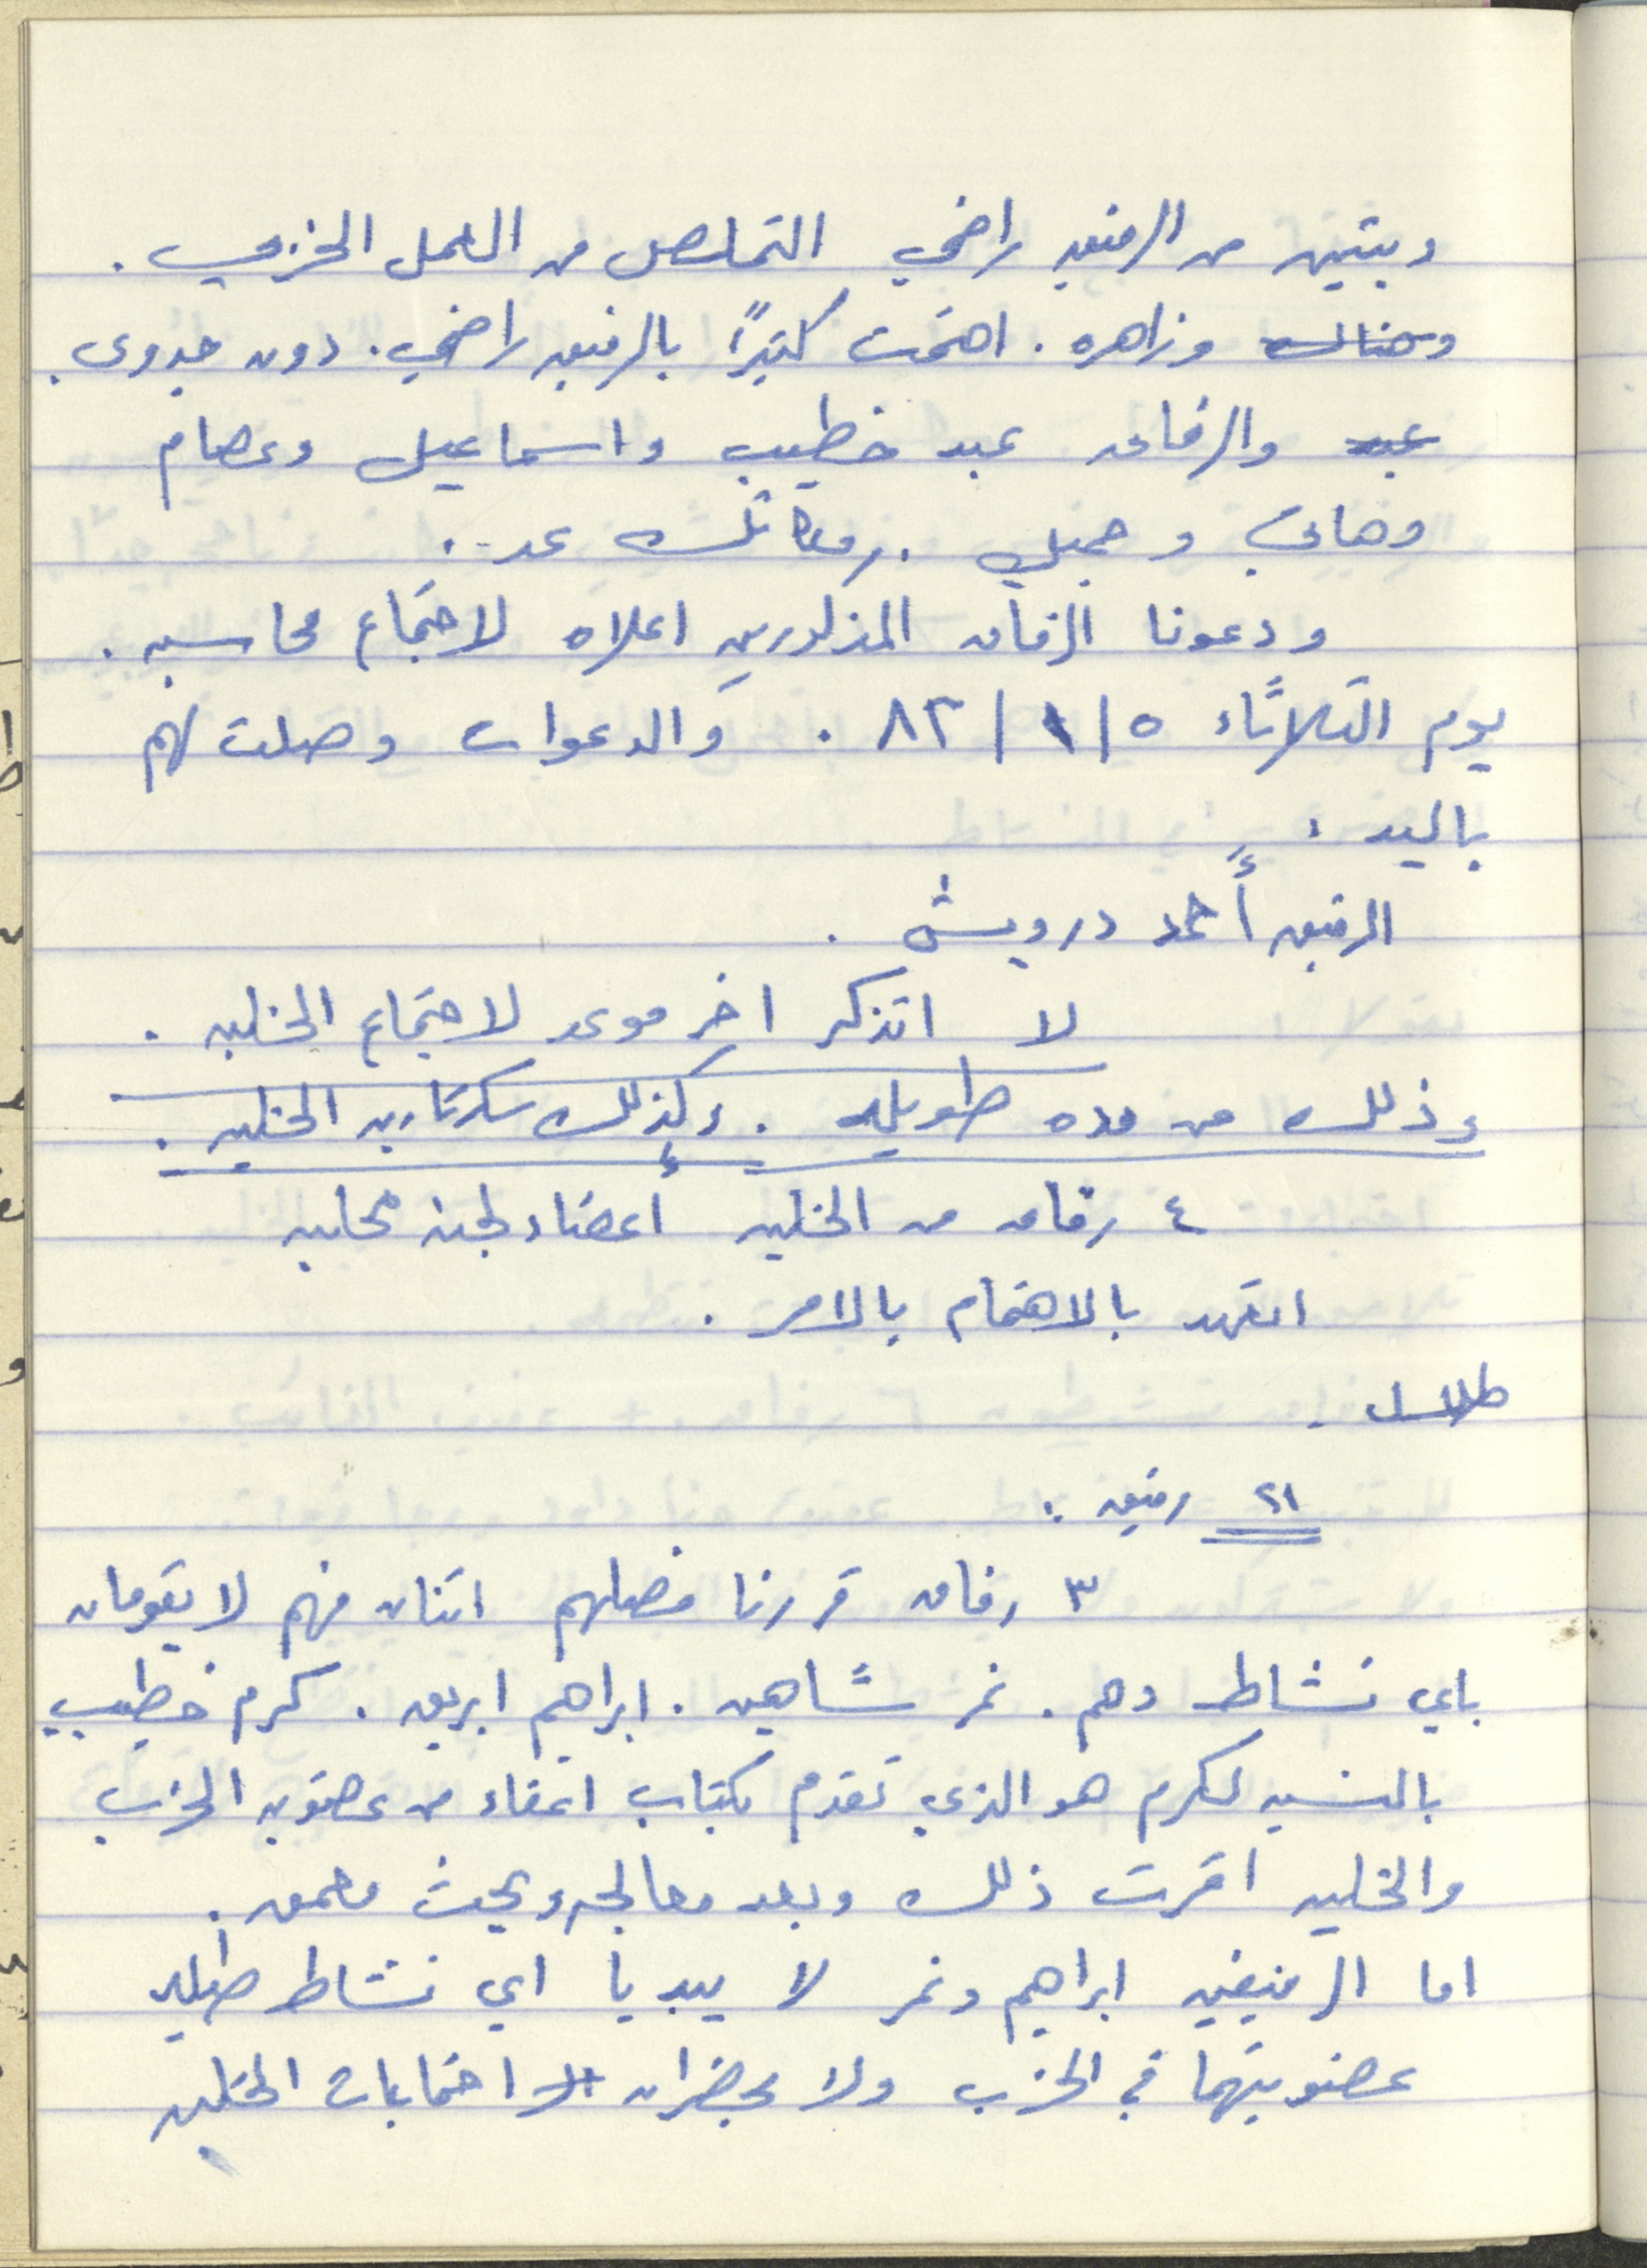 ويتبين من الرفيق راضي التملص من العمل الحزبي .
وهنالك وزاهره . اهتمت كثيرًا بالرفيق راضي . دون جدوى .
عبد والرفاق عبد خطيب واسماعيل وعصام
وهاني وجميل .
ودعونا الرفاق المذكورين اعلاه لاجتماع محاسبه .
يوم الثلاثاء ٥ / ١ / ٨٢ . والدعوات وصلت لهم
باليد .
الرفيق أحمد درويش .
لا اتذكر اخر موعد لاجتماع الخليه .
وذلك من مده طويله . وكذلك سكرتاريه الخليه .
٤ رفاق من الخليه أعضاء لجنه محليه
اتعهد بالاهتمام بالامر .
طلال .
٢١ رفيق :
٣ رفاق قررنا فصلهم اثنان منهم لا يقومان
باي نشاط وهم . نمر شاهين . ابراهيم ابريق . كرم خطيب
بالنسبه لكرم هو الذي تقدم بكتاب اعفاء من عضويه الحزب
والخليه اقرت ذلك وبعد معالجه وبحث معمق .
اما الرفيقين ابراهيم ونمر لا يبديا اي نشاط طيله
عضويتهما في الحزب ولا يحضران اجتماعات الخليه